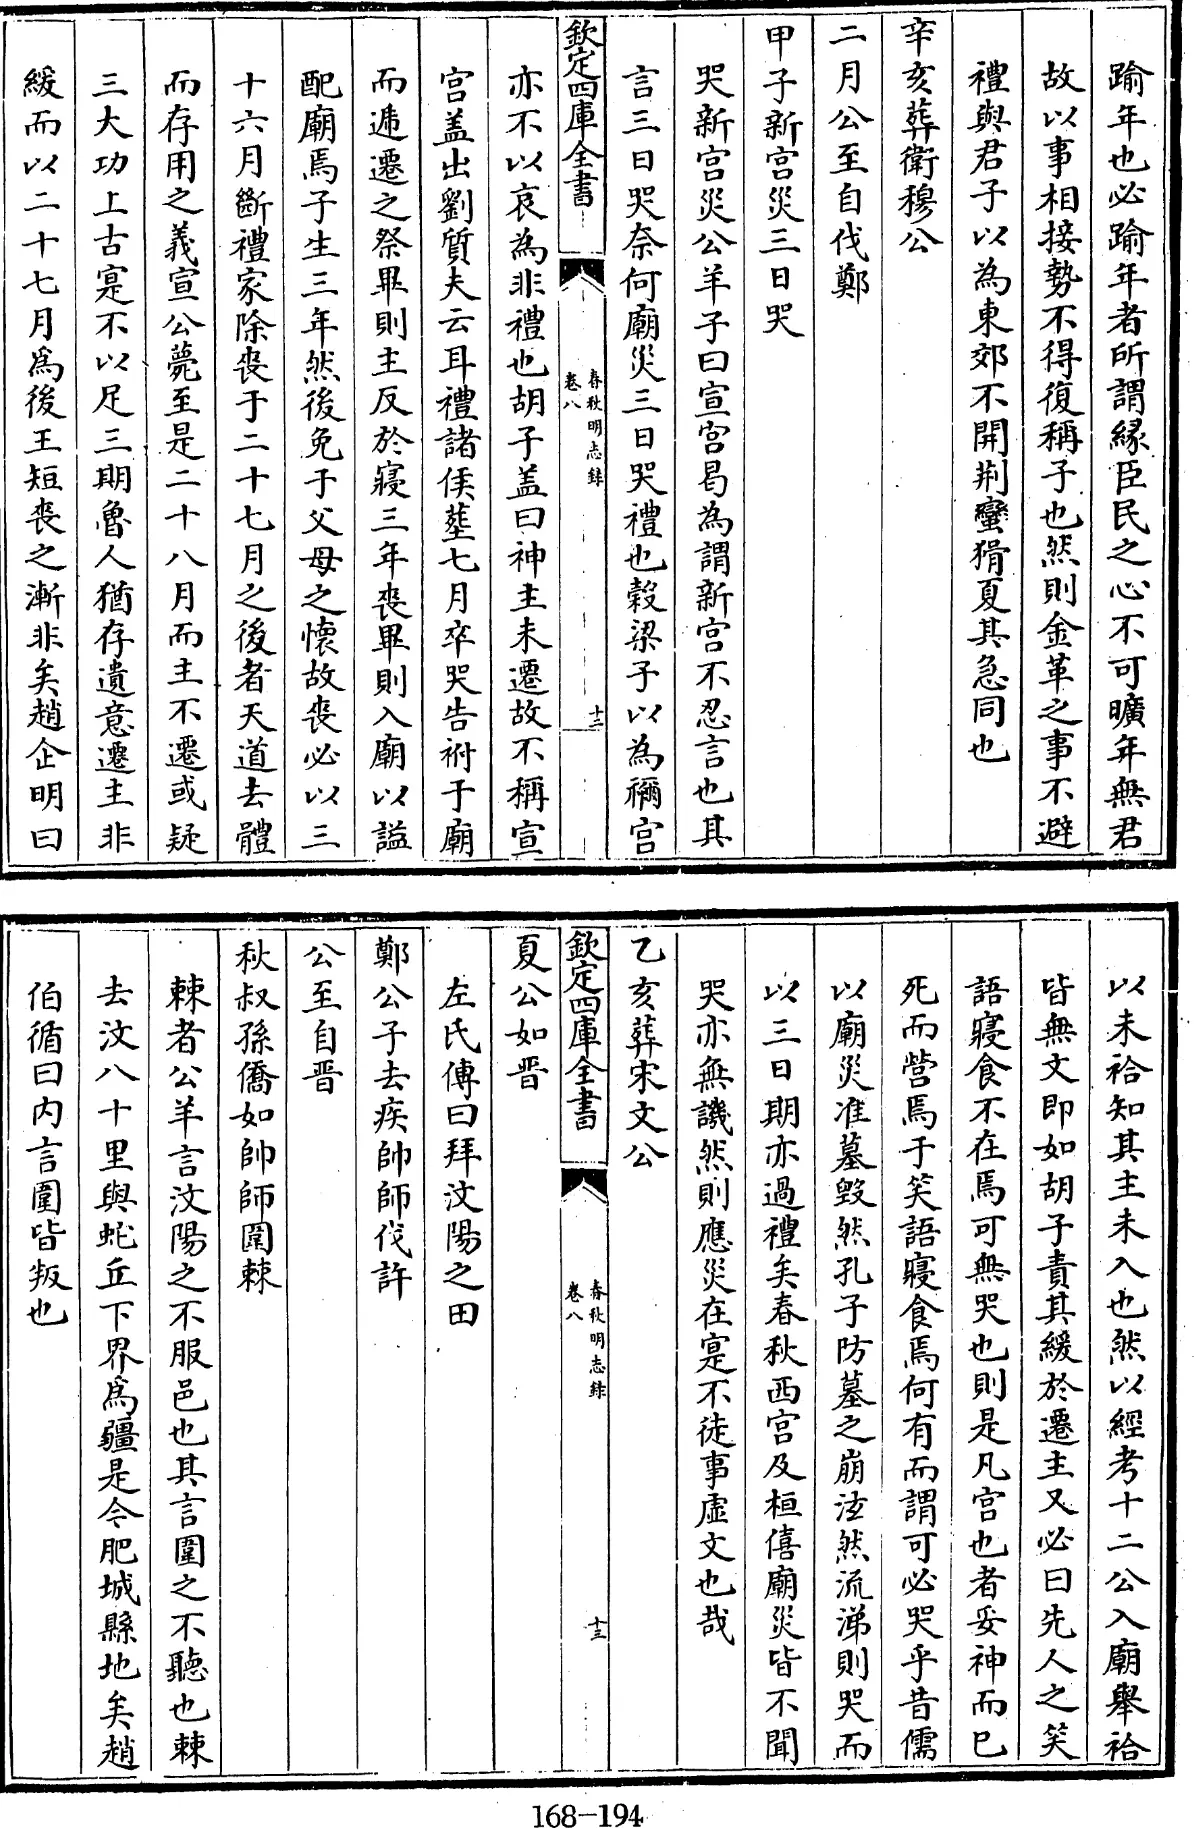 踰年也必踰年者所謂緣臣民之心不可曠年無君
故以事相接勢不得復稱子也然則金革之事不避
禮與君子以為東郊不開荆蠻猾夏其急同也
辛亥葬衛穆公
二月公至自伐鄭
甲子新宮災三日哭
哭新宮災公羊子曰宣宮曷為謂新宮不忍言也其
言三日哭奈何廟災三日哭禮也榖梁子以為禰宮
欽定四庫全書
春秋明志錄
卷八
十二
亦不以哀為非禮也胡子盖曰神主未遷故不稱宣
宮盖出劉質夫云耳禮諸侯塟七月卒哭告祔于廟
而遞遷之祭畢則主反於寢三年喪畢則入廟以謚
配廟焉子生三年然後免于父母之懷故喪必以三
十六月斷禮家除喪于二十七月之後者天道去體
而存用之義宣公薨至是二十八月而主不遷或疑
三大功上古寔不以足三期魯人猶存遺意遷主非
緩而以二十七月爲後王短喪之漸非矣趙企明曰
以未祫知其主未入也然以經考十二公入廟舉祫
皆無文即如胡子責其緩於遷主又必曰先人之笑
語寢食不在焉可無哭也則是凡宮也者妥神而已
死而營焉于笑語寢食焉何有而謂可必哭乎昔儒
以廟災准墓毀然孔子防墓之崩泫然流涕則哭而
以三日期亦過禮矣春秋西宮及桓僖廟災皆不聞
哭亦無譏然則應災在寔不徒事虛文也哉
乙亥葬宋文公
欽定四庫全書
春秋明志錄
卷八
十三
夏公如晋
左氏傳曰拜汶陽之田
鄭公子去疾帥師伐許
公至自晋
秋叔孫僑如帥師圍棘
棘者公羊言汶陽之不服邑也其言圍之不聽也棘
去汶八十里與蛇丘下界爲疆是今肥城縣地矣趙
伯循曰内言圍皆叛也
168-194